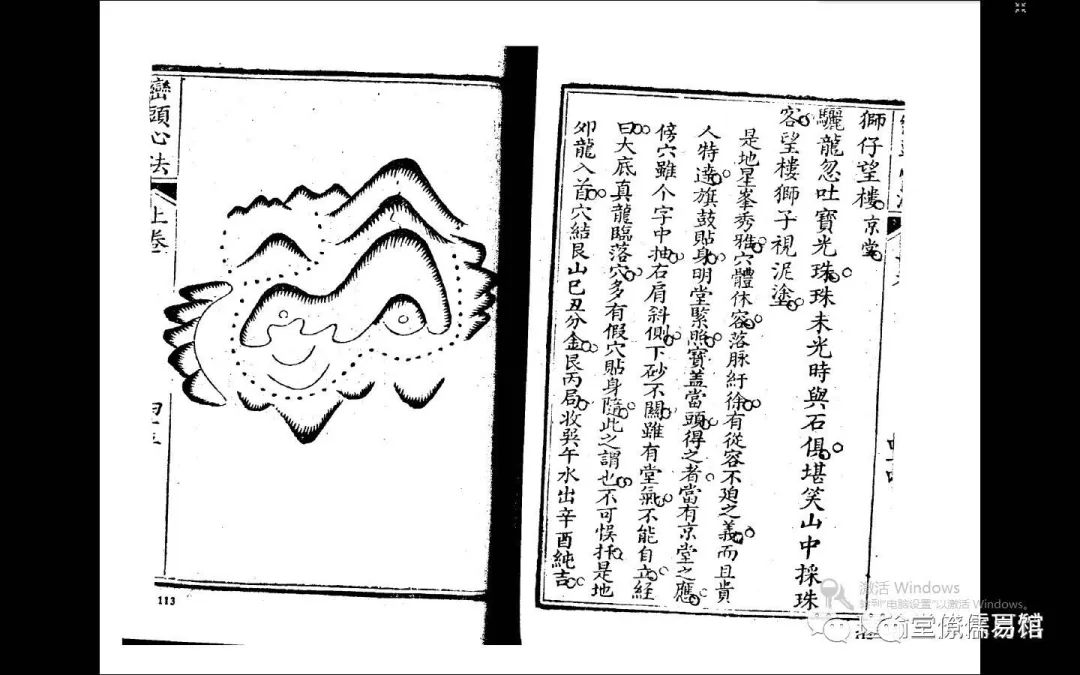 獅仔望樓 京堂
驪龍忽吐寶光珠珠未光時與石俱堪笑山中採珠
客望樓獅子視泥塗
是地星峯秀雅穴體休容落脉紆徐有從容不迫之義而且貴
人特達旗鼓貼身明堂緊照寶蓋當頭得之者當有京堂之應
傍穴雖个字中抽右肩斜側下砂不關雖有堂氣不能自立經
曰大底真龍臨落穴多有假穴貼身隨此之謂也不可悞扦是地
夘龍入首穴結艮山巳丑分金艮丙局收巽午水出辛酉純吉
巒頭心法
上卷
113
激活 Windows
转到"电脑设置"以激活 Windows。
堂僚儒易馆